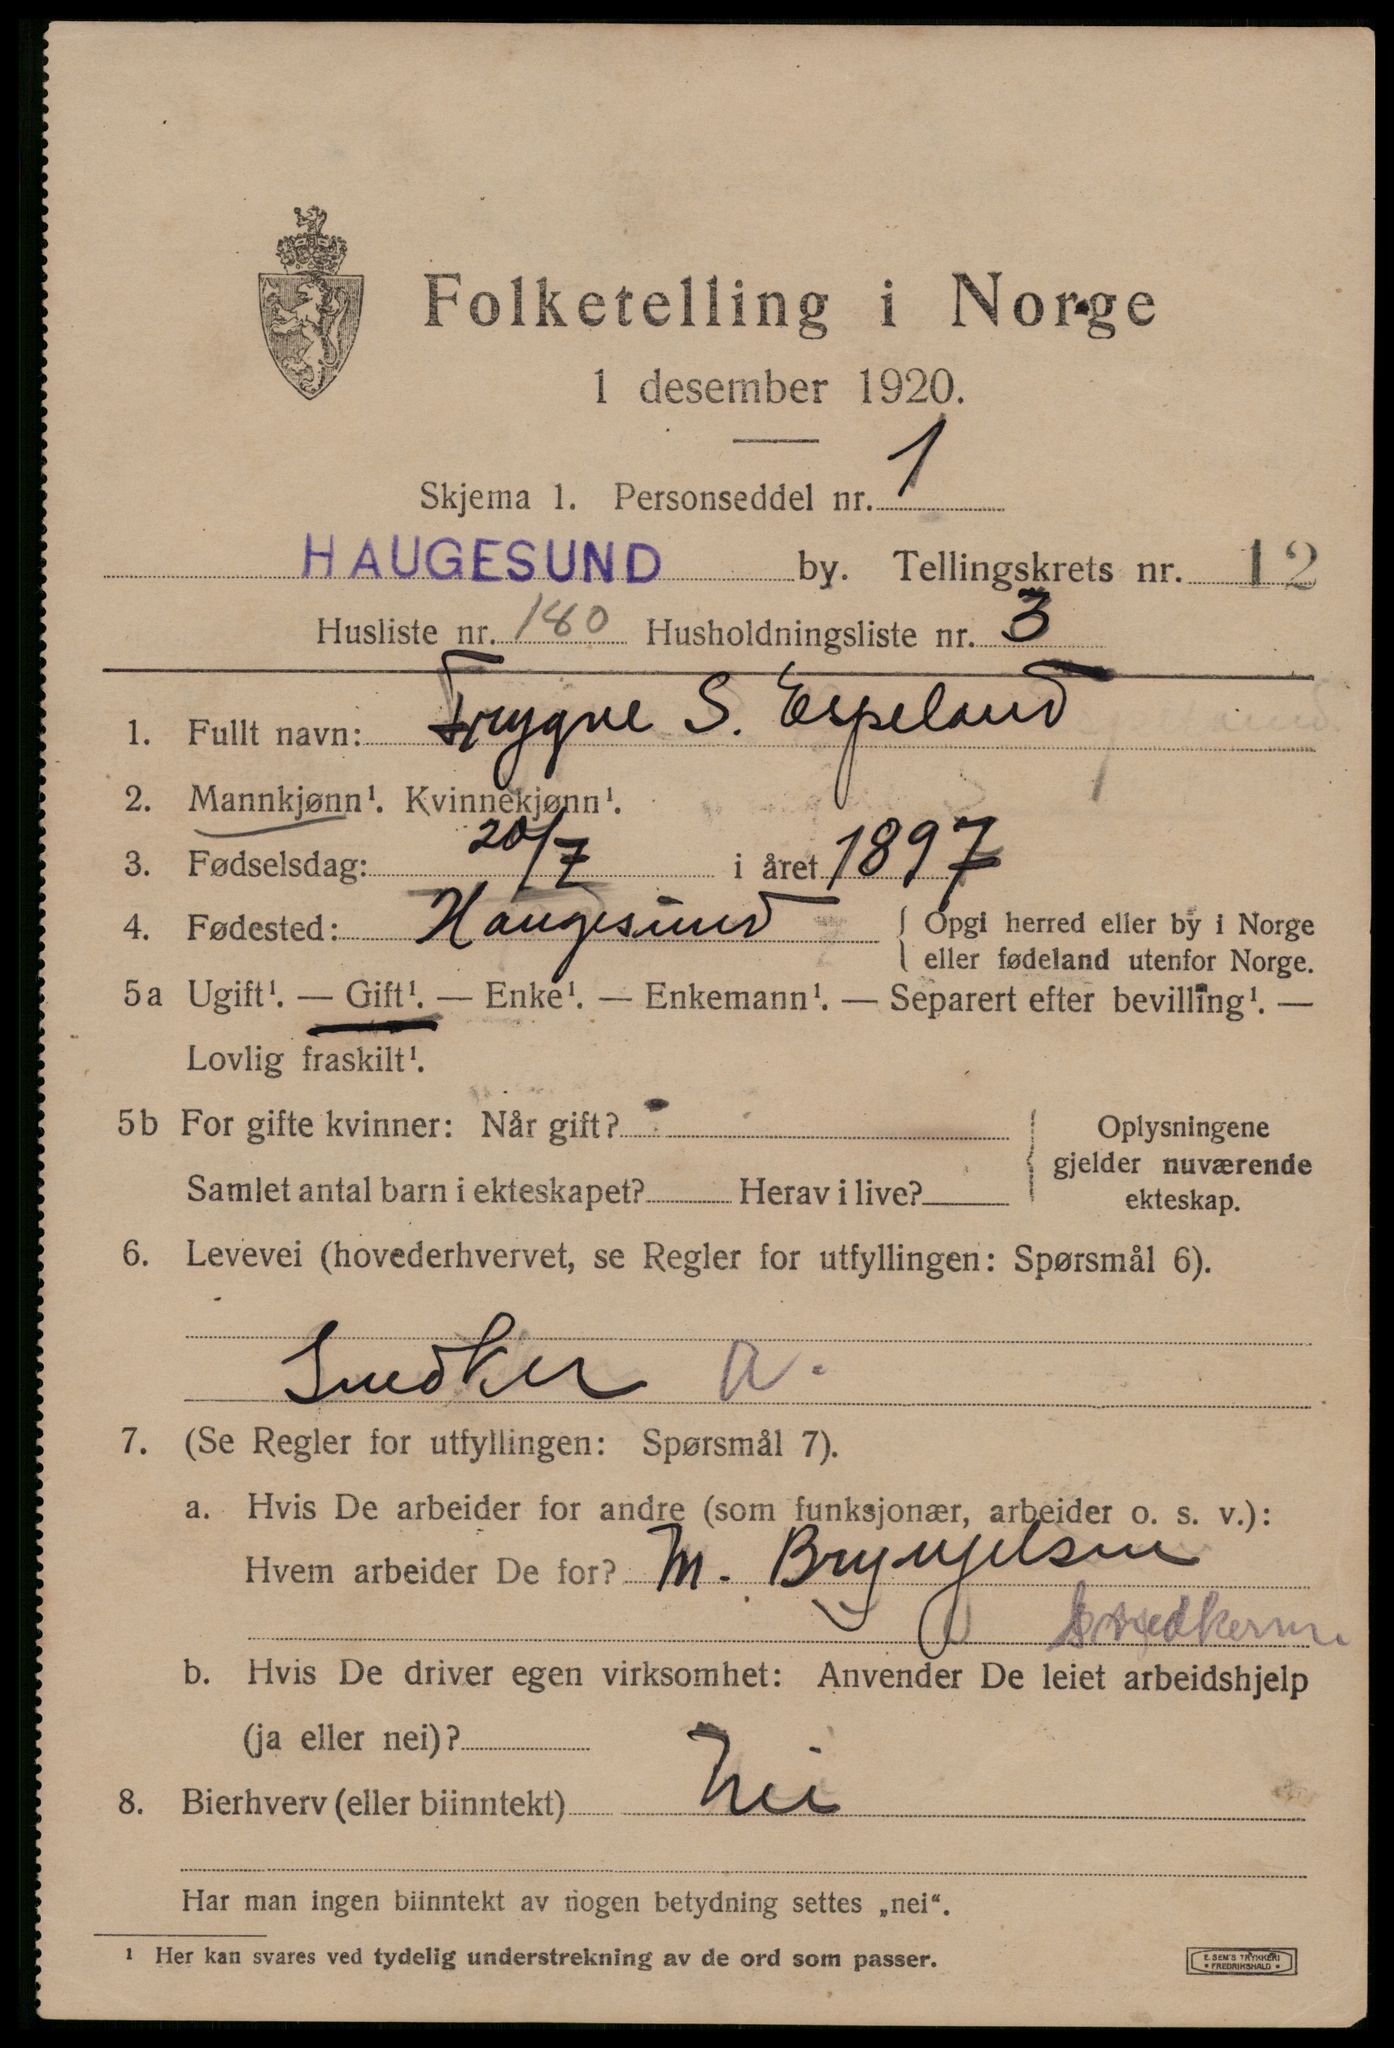 Folketelling i Norge
1 desember 1920.
Skjema 1. Personseddel nr. 1
HAUGESUND by. Tellingskrets nr. 12
Husliste nr. 180 Husholdningsliste nr. 3
1. Fullt navn: Trygve S. Espeland
2. Mannkjønn¹. Kvinnekjønn¹.
3. Fødselsdag: 20/7 i året 1897
4. Fødested: Haugesund { Opgi herred eller by i Norge
eller fødeland utenfor Norge.
5a Ugift¹. — Gift¹. — Enke¹. — Enkemann¹. — Separert efter bevilling¹. —
Lovlig fraskilt¹.
5b For gifte kvinner: Når gift? { Oplysningene
gjelder nuværende
Samlet antal barn i ekteskapet? Herav i live?
ekteskap.
6. Levevei (hovederhvervet, se Regler for utfyllingen: Spørsmål 6).
Snedker a.
7. (Se Regler for utfyllingen: Spørsmål 7).
a. Hvis De arbeider for andre (som funksjonær, arbeider o. s. v.):
Hvem arbeider De for? M. Bryngelsen
b. Hvis De driver egen virksomhet: Anvender De leiet arbeidshjelp
(ja eller nei)?
8. Bierhverv (eller biinntekt) Nei
Har man ingen biinntekt av nogen betydning settes „nei“.
¹ Her kan svares ved tydelig understrekning av de ord som passer.
E. SEM'S TRYKKERI
• FREDRIKSHALD •